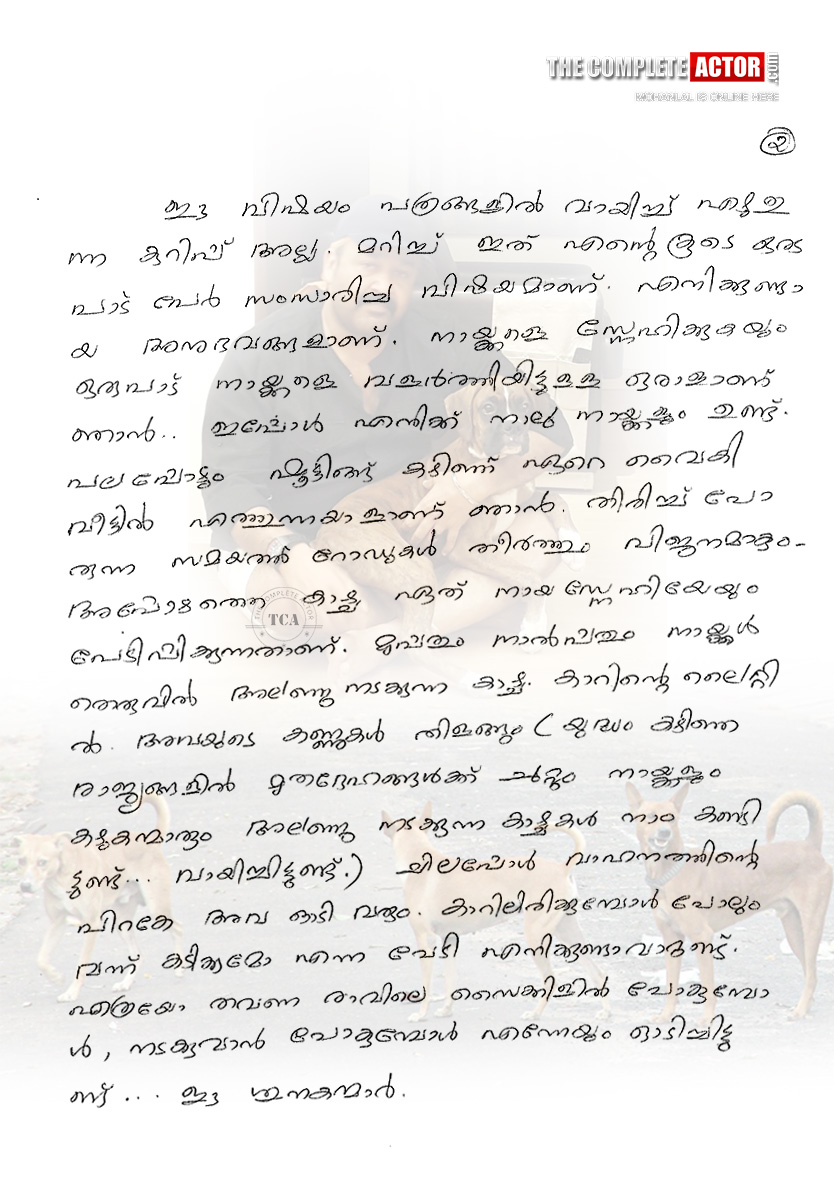 THE COMPLETE ACTOR .com
MOHANLAL IS ONLINE HERE
2
ഈ വിഷയം പത്രങ്ങളിൽ വായിച്ച് എഴുതു
ന്ന കുറിപ്പ് അല്ല. മറിച്ച് ഇത് എന്റെ കൂടെ ഒരു
പാട് പേർ സംസാരിച്ച വിഷയമാണ്. എനിക്കുണ്ടാ
യ അനുഭവങ്ങളാണ്. നായ്ക്കളെ സ്നേഹിക്കുകയും
ഒരുപാട് നായ്ക്കളെ വളർത്തിയിട്ടുള്ള ഒരാളാണ്
ഞാൻ.. ഇപ്പോൾ എനിക്ക് നാലു നായ്ക്കളും ഉണ്ട്.
പലപ്പോഴും ഷൂട്ടിങ്ങ് കഴിഞ്ഞ് ഏറെ വൈകി
വീട്ടിൽ എത്തുന്നയാളാണ് ഞാൻ. തിരിച്ച് പോ
രുന്ന സമയത്ത് റോഡുകൾ തീർത്തും വിജനമാകും-
അപ്പോഴത്തെ കാഴ്ച ഏത് നായ സ്നേഹിയേയും
THE COMPLETE ACTOR
TCA
പേടിപ്പിക്കുന്നതാണ്. മുപ്പതും നാൽപ്പതും നായ്ക്കൾ
തെരുവിൽ അലഞ്ഞു നടക്കുന്ന കാഴ്ച. കാറിന്റെ ലൈറ്റി
ൽ. അവയുടെ കണ്ണുകൾ തിളങ്ങും (യുദ്ധം കഴിഞ്ഞ
രാജ്യങ്ങളിൽ മൃതദേഹങ്ങൾക്ക് ചുറ്റും നായ്ക്കളും
കഴുകന്മാരും അലഞ്ഞു നടക്കുന്ന കാഴ്ചകൾ നാം കണ്ടി
ട്ടുണ്ട്... വായിച്ചിട്ടുണ്ട്.) ചിലപ്പോൾ വാഹനത്തിന്റെ
പിറകേ അവ ഓടി വരും. കാറിലിരിക്കുമ്പോൾ പോലും
വന്ന് കടിക്കുമോ എന്ന പേടി എനിക്കുണ്ടാവാറുണ്ട്.
എത്രയോ തവണ രാവിലെ സൈക്കിളിൽ പോകുമ്പോ
ൾ, നടക്കുവാൻ പോകുമ്പോൾ എന്നേയും ഓടിച്ചിട്ടു
ണ്ട്... ഈ ശുനകന്മാർ.